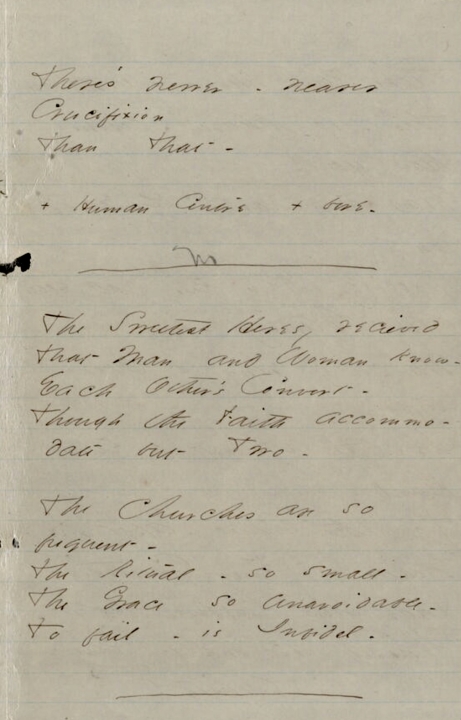 There's newer - nearer
Crucifixion
Than That -
+ Human Centre + tore.
The Sweetest Heresy recieved
That Man and Woman know -
Each Other's Convert -
Though the Faith accommo-
date but Two -
The Churches are so
frequent -
The Ritual - so small -
The Grace so unavoidable -
To fail - is Infidel -